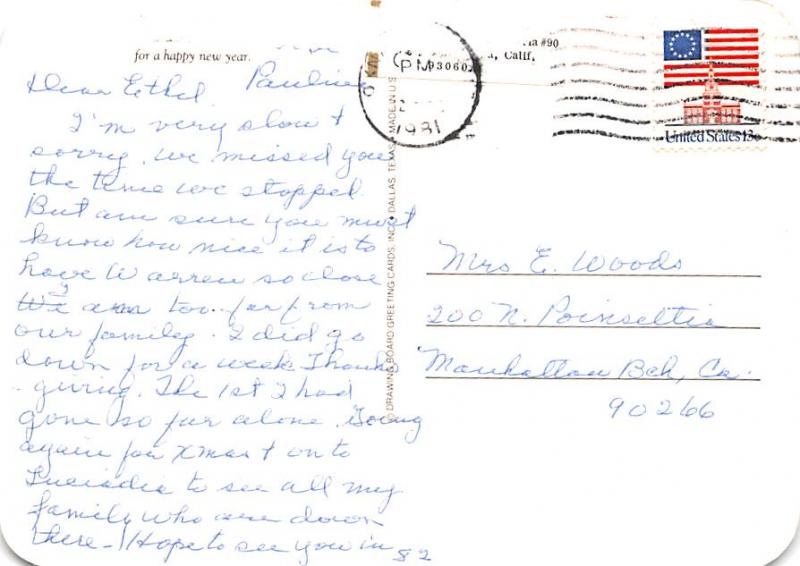 for a happy new year.
Dear Ethel, Pauline
I'm very slow &
sorry. We missed you
the time we stopped.
But am sure you must
know how nice it is to
have Warren so close
I am too far from
our family. I did go
down for a week Thanks
giving. The 1st I had
gone so far alone. Going
again for Xmas & on to
to see all my
family who are down
there - Hope to see you in 82
© DRAWING BOARD GREETING CARDS, INC. DALLAS, TEXAS MADE IN U.S.
#90
Calif.
PM
93060
1981
United States 13c
Mrs E. Woods
200 N. Poinsettia
Manhattan Bch, Ca.
90266